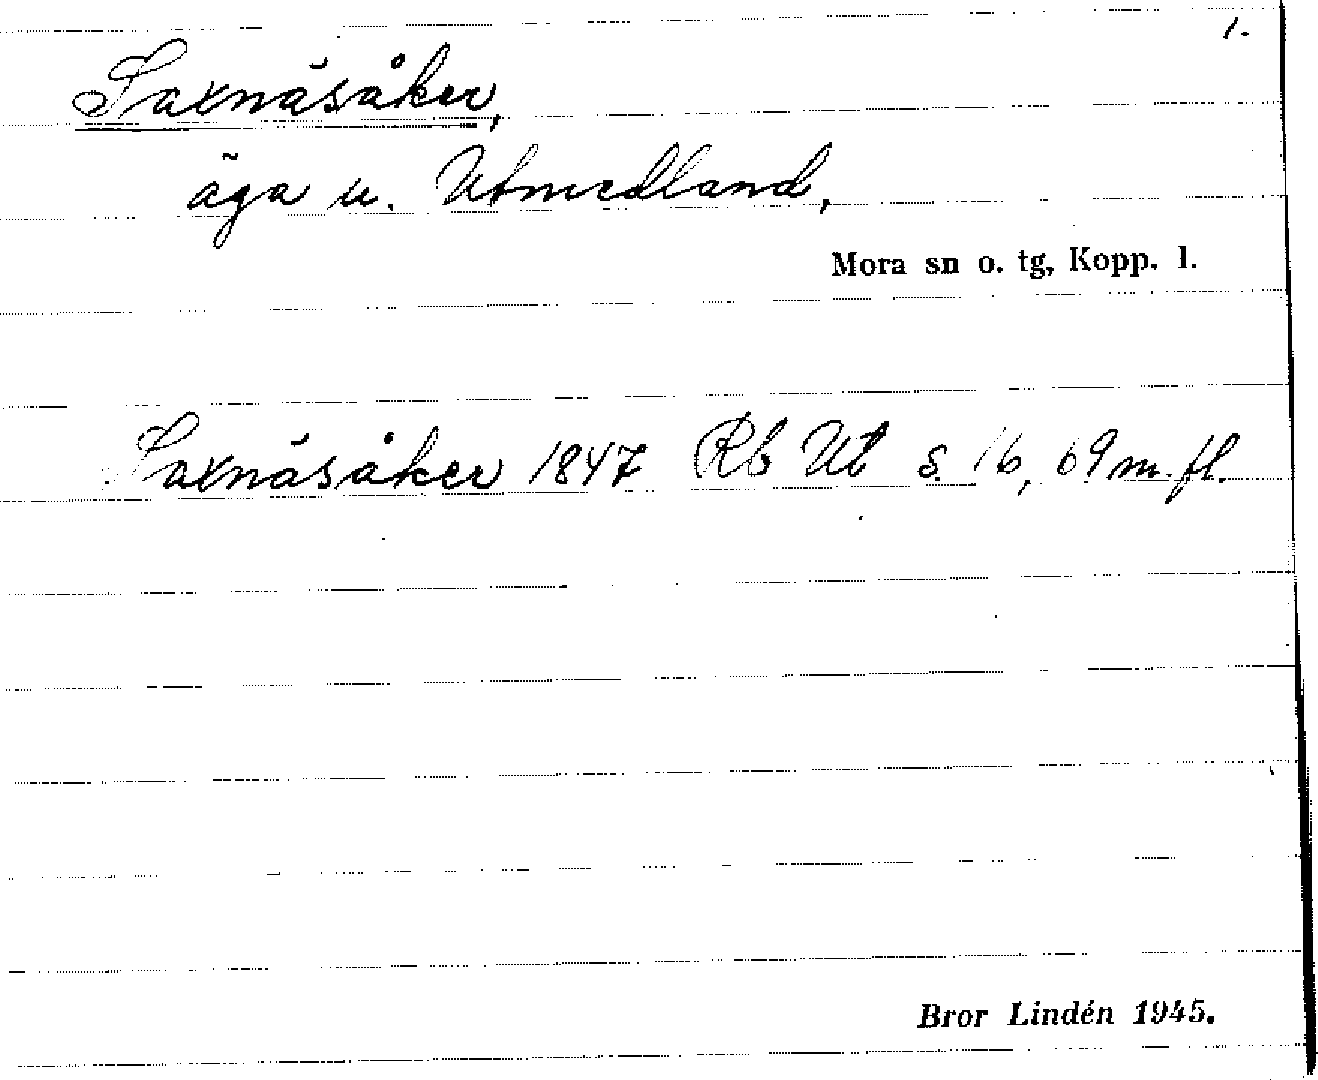 1.
Saxnäsåker,
äga u. Utmedland,
Mora sn o. tg, Kopp. l.
Saxnäsåker 1847 Rb Ut s. 16, 69 m. fl.
Bror Lindén 1945.